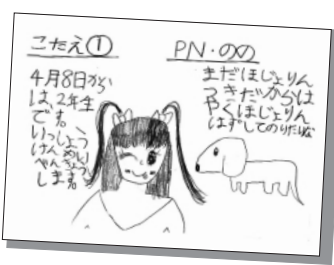 こたえ①
4月8日から
は、2年生
です。
いっしょう
けんめい
べんきょう
します。
PN・のの
まだほじょりん
つきだからは
やくほじょりん
はずしてのりたいな